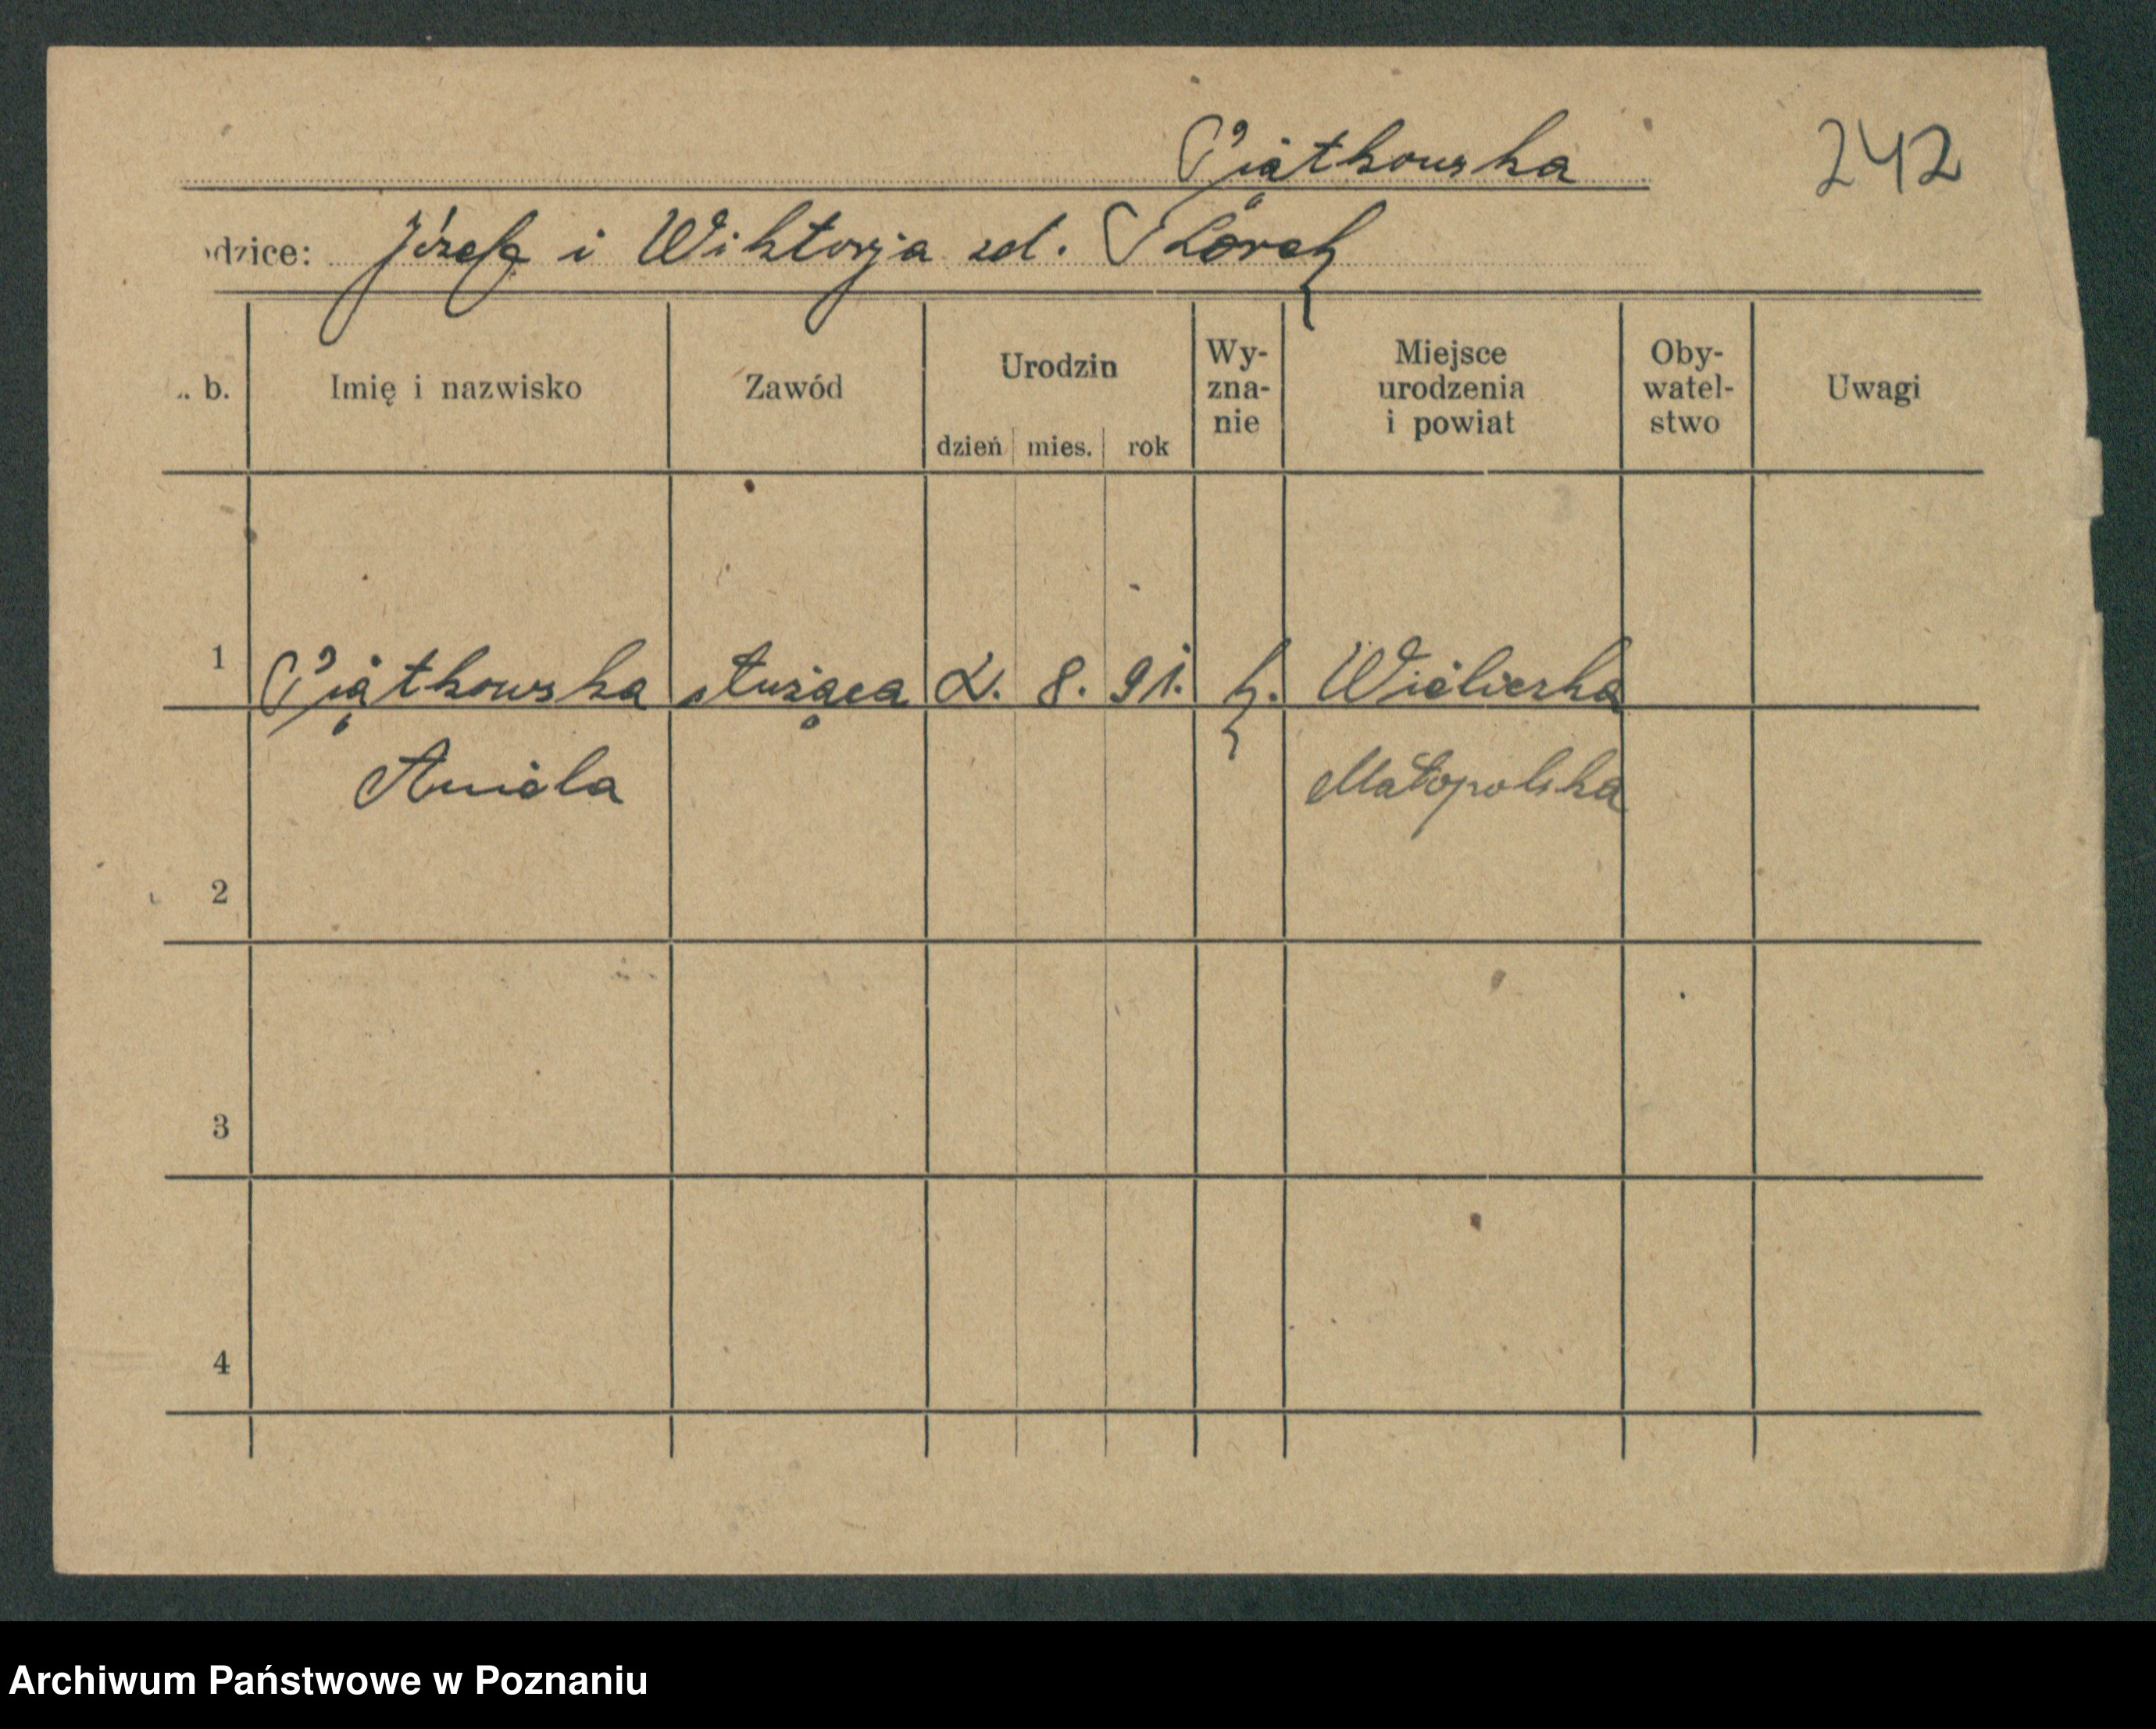 Piątkowska
242
odzice: Józef i Wiktorja zd.
. b. Imię i nazwisko Zawód Urodzin dzień mies. rok Wy-zna-nie Miejsce urodzenia i powiat Oby-watel-stwo Uwagi
1 Piątkowska służąca 2. 8. 91. k. Wieliczka
Aniela Małopolska
2
3
4
Archiwum Państwowe w Poznaniu